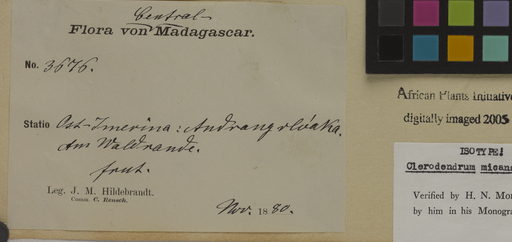 Central-
Flora von Madagascar.
No. 3676.
Statio Ost-Imerina: Andrangolóaka.
Am Waldrande.
frut.
Leg. J. M. Hildebrandt.
Comm. C. Rensch.
Nov. 1880.
African Plants Initiative
digitally imaged 2005
ISOTYPE!
Clerodendrum micans
Verified by H. N. Mol
by him in his Monogra